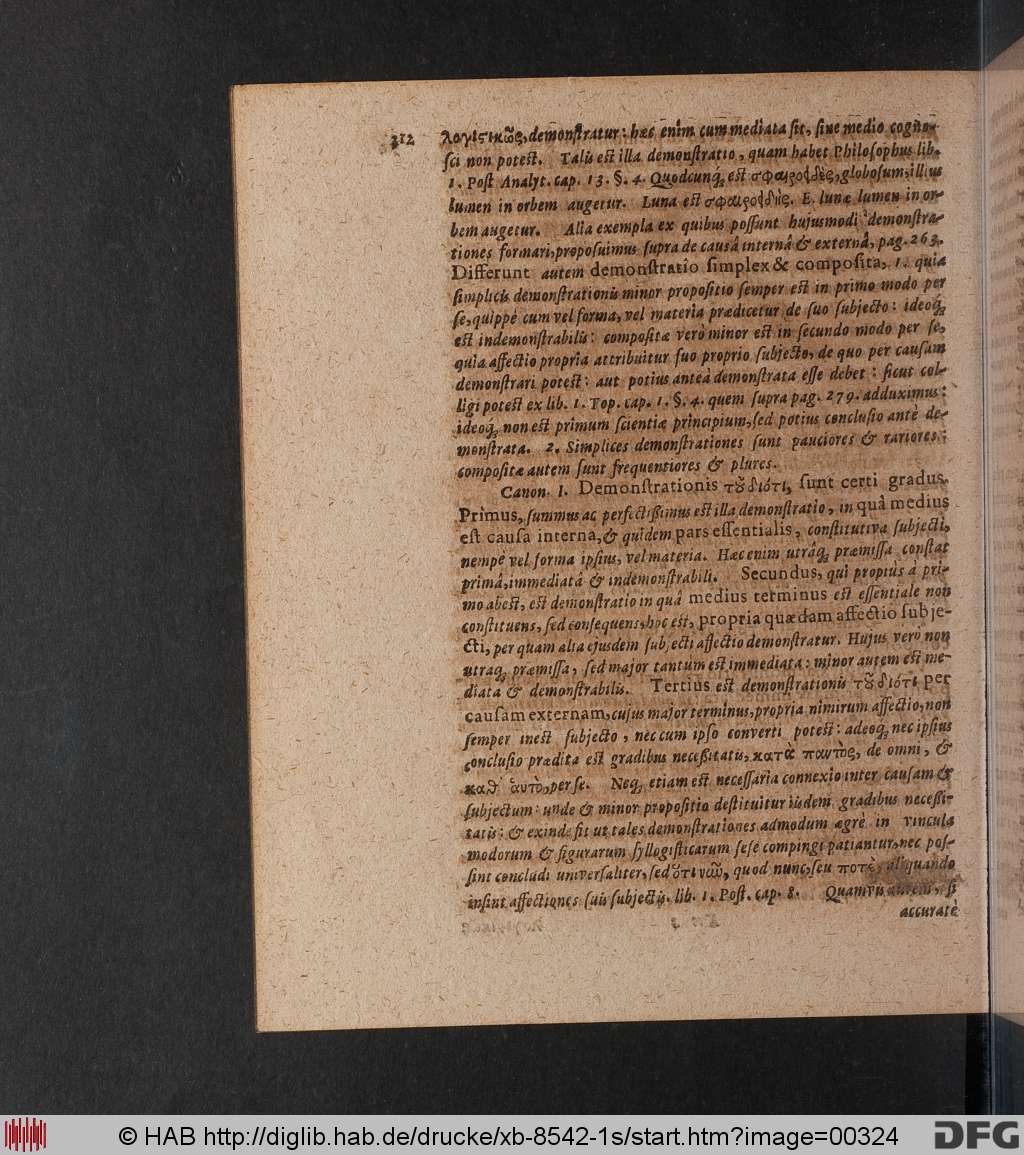 312 λογιστικῶς, demonstratur: hæc enim cum mediata sit, sine medio cogno-
sci non potest. Talis est illa demonstratio, quam habet Philosophus lib.
1. Post Analyt. cap. 13. §. 4. Quodcunq; est σφαιροειδὲς, globosum, illius
lumen in orbem augetur. Luna est σφαιροειδής. E. lunæ lumen in or-
bem augetur. Alia exempla ex quibus possunt hujusmodi demonstra-
tiones formari, proposuimus supra de causâ internâ & externâ, pag. 263.
Differunt autem demonstratio simplex & composita, 1. quia
simplicis demonstrationis minor propositio semper est in primo modo per
se, quippe cum vel forma, vel materia prædicetur de suo subjecto: ideoq;
est indemonstrabilis: compositæ verò minor est in secundo modo per se,
quia affectio propria attribuitur suo proprio subjecto, de quo per causam
demonstrari potest: aut potius anteà demonstrata esse debet: sicut col-
ligi potest ex lib. 1. Top. cap. 1. §. 4. quem supra pag. 279. adduximus:
ideoq; non est primum scientiæ principium, sed potius conclusio antè de-
monstrata. 2. Simplices demonstrationes sunt pauciores & rariores:
compositæ autem sunt frequentiores & plures.
Canon. 1. Demonstrationis τοῦ διότι, sunt certi gradus.
Primus, summus ac perfectissimus est illa demonstratio, in quâ medius
est causa interna, & quidem pars essentialis, constitutiva subjecti,
nempe vel forma ipsius, vel materia. Hæc enim utrâq; præmissa constat
primâ, immediatâ & indemonstrabili. Secundus, qui propius à pri-
mo abest, est demonstratio in quâ medius terminus est essentiale non
constituens, sed consequens, hoc est, propria quædam affectio subje-
cti, per quam alia ejusdem subjecti affectio demonstratur. Hujus verò non
utraq; præmissa, sed major tantùm est immediata: minor autem est me-
diata & demonstrabilis. Tertius est demonstrationis τοῦ διότι per
causam externam, cujus major terminus, propria nimirum affectio, non
semper inest subjecto, nec cum ipso converti potest: adeoq; nec ipsius
conclusio prædita est gradibus necessitatis, κατὰ παντὸς, de omni, &
καθ' αὑτὸ, per se. Neq; etiam est necessaria connexio inter causam &
subjectum: unde & minor propositio destituitur iisdem gradibus necessi-
tatis: & exinde fit ut tales demonstrationes admodum ægrè in vincula
modorum & figurarum syllogisticarum sese compingi patiantur, nec pos-
sint concludi universaliter, sed ὅτι νῦν, quod nunc, seu ποτὲ, aliquando
insint affectiones suis subjectis. lib. 1. Post. cap. 8. Quamvis autem, si
accuratè
© HAB http://diglib.hab.de/drucke/xb-8542-1s/start.htm?image=00324
DFG